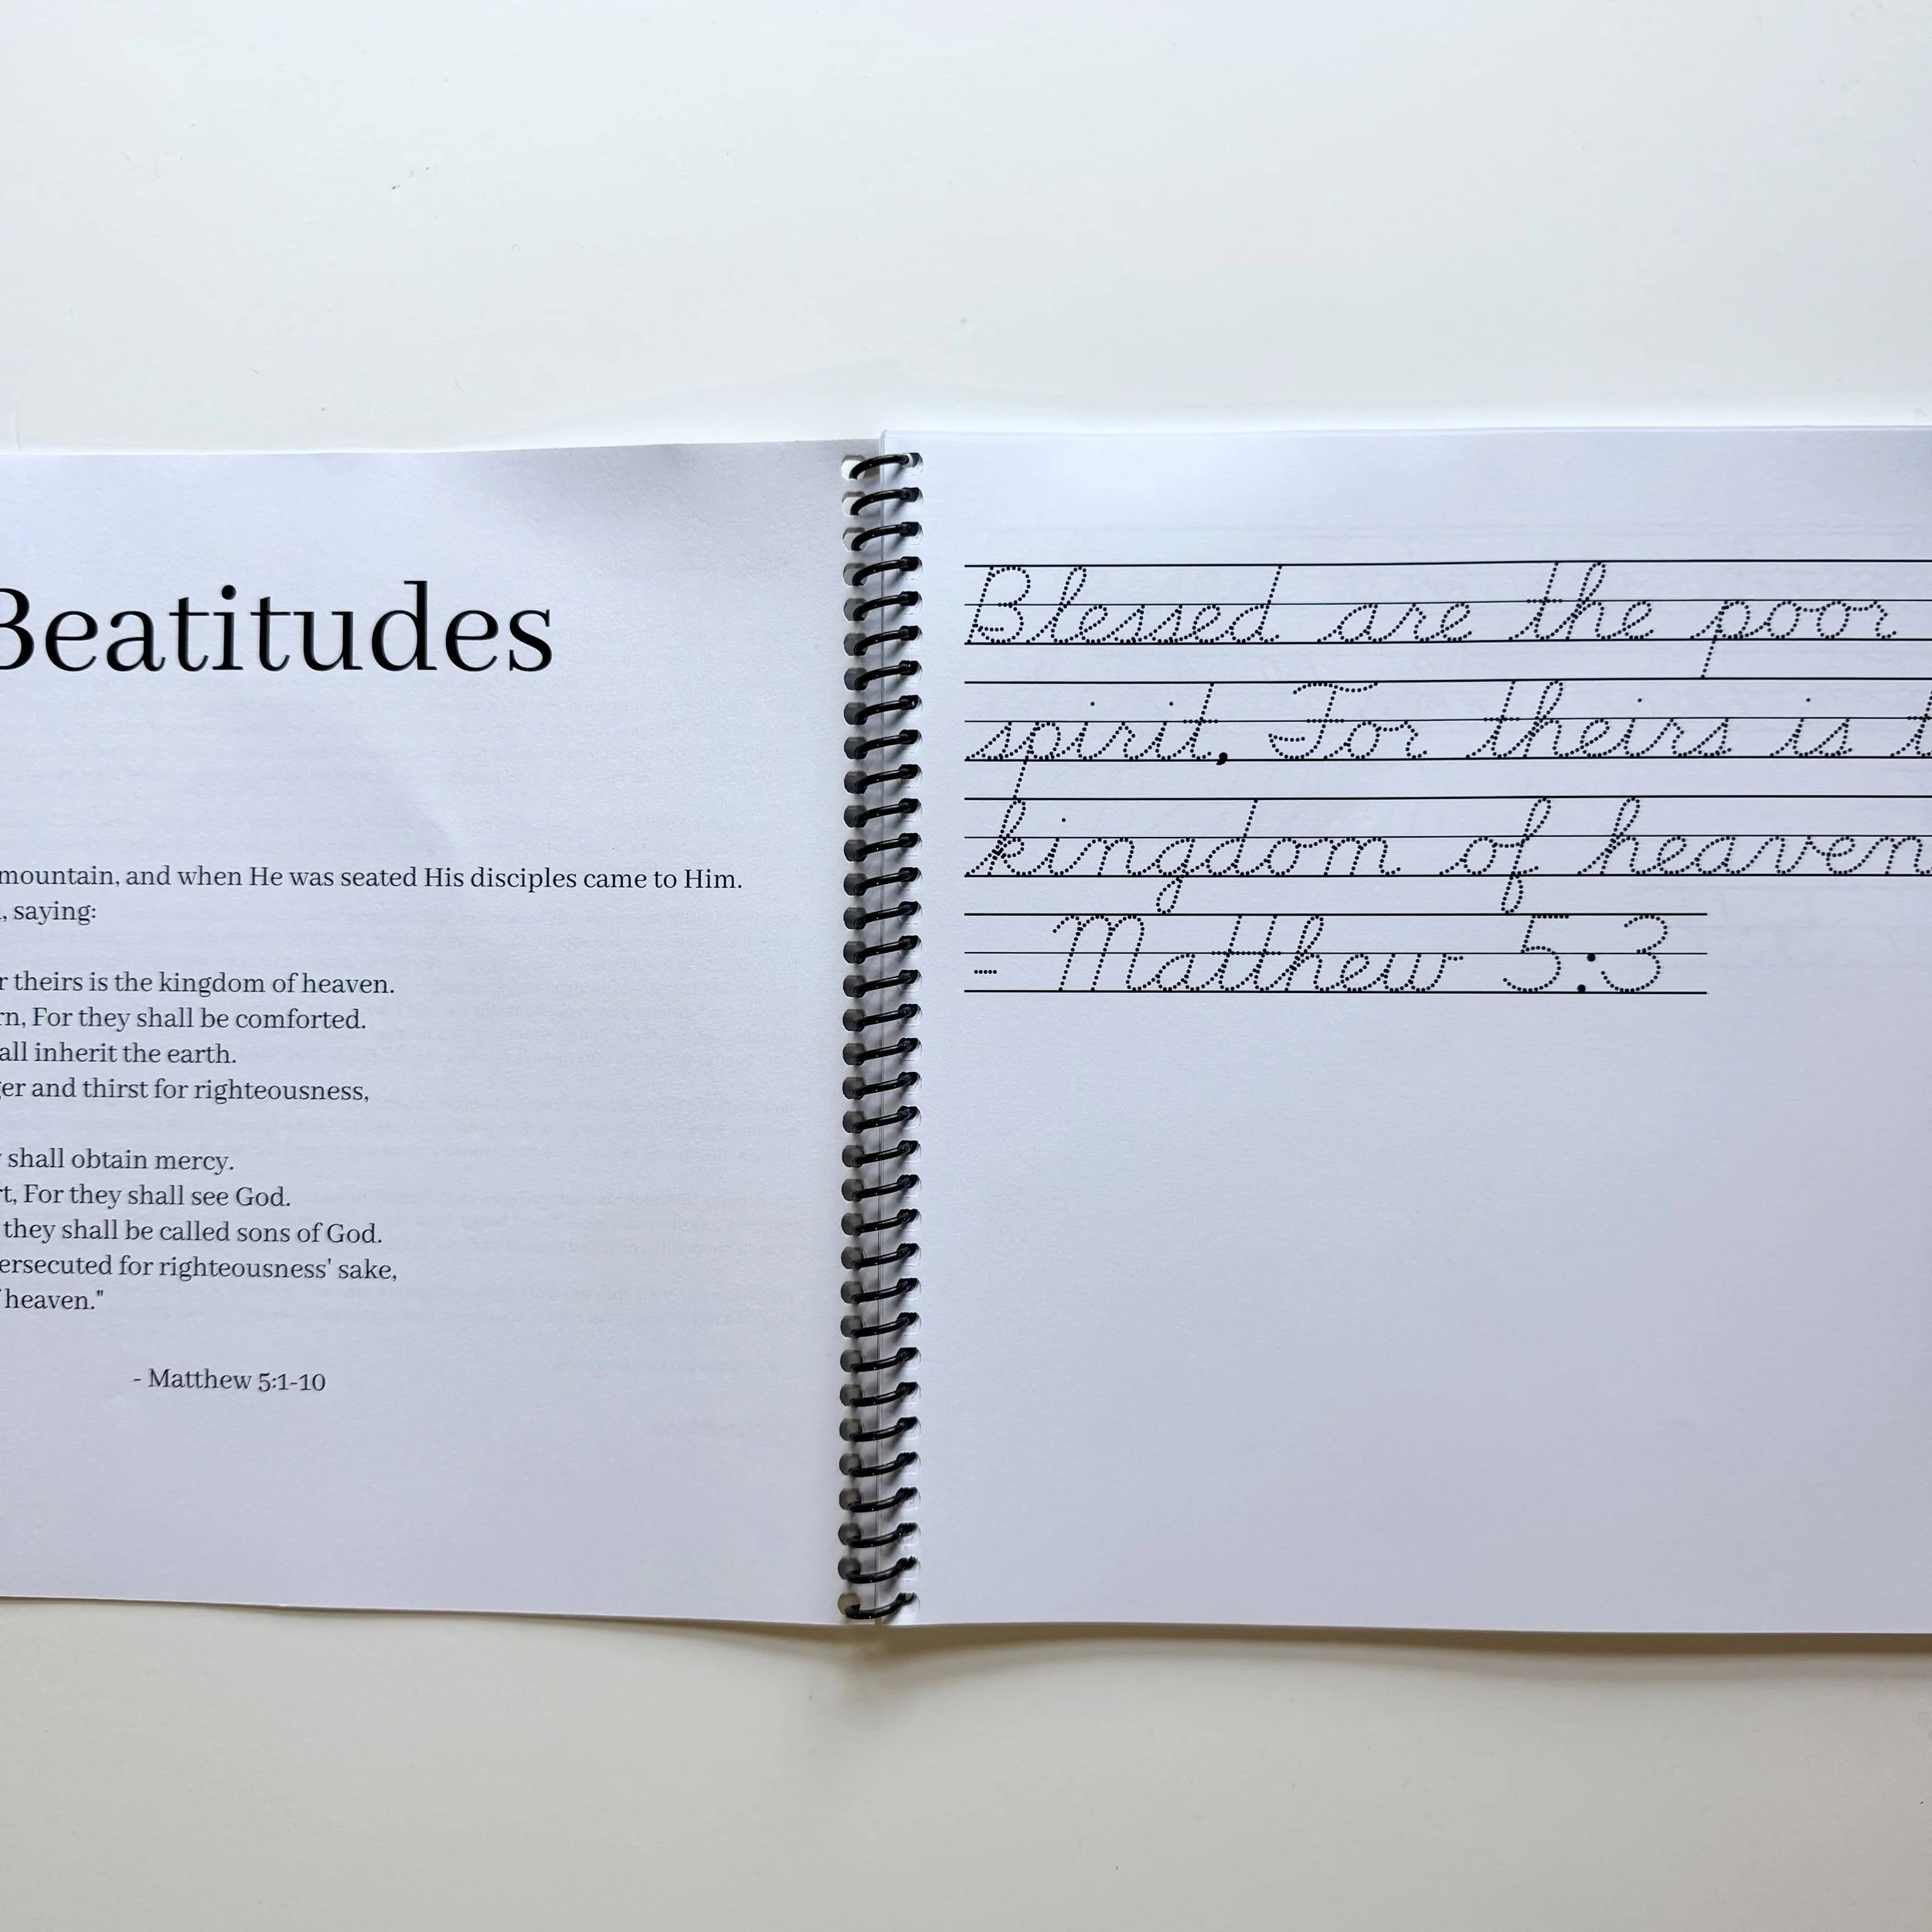 Beatitudes
mountain, and when He was seated His disciples came to Him.
, saying:
r theirs is the kingdom of heaven.
rn, For they shall be comforted.
all inherit the earth.
ger and thirst for righteousness,
shall obtain mercy.
rt, For they shall see God.
they shall be called sons of God.
ersecuted for righteousness' sake,
f heaven."
- Matthew 5:1-10
Blessed are the poor
spirit, For theirs is t
kingdom of heaven
- Matthew 5:3